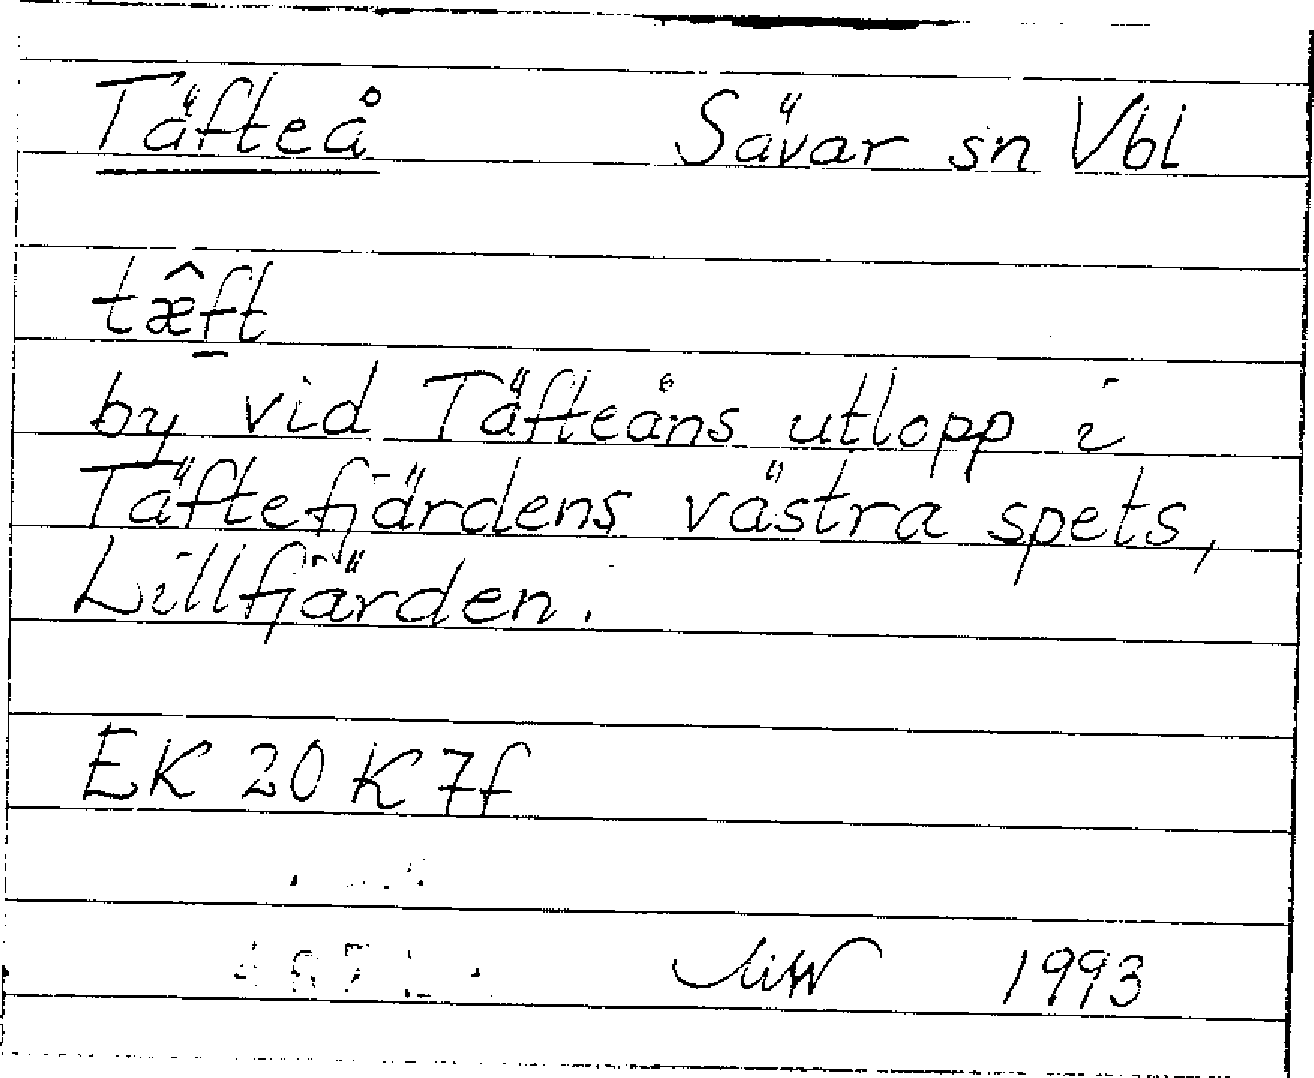 Täfteå Sävar sn Vbl
tæ̂f̱t
by vid Täfteåns utlopp i
Täftefjärdens västra spets,
Lillfjärden.
EK 20 K 7f
1993